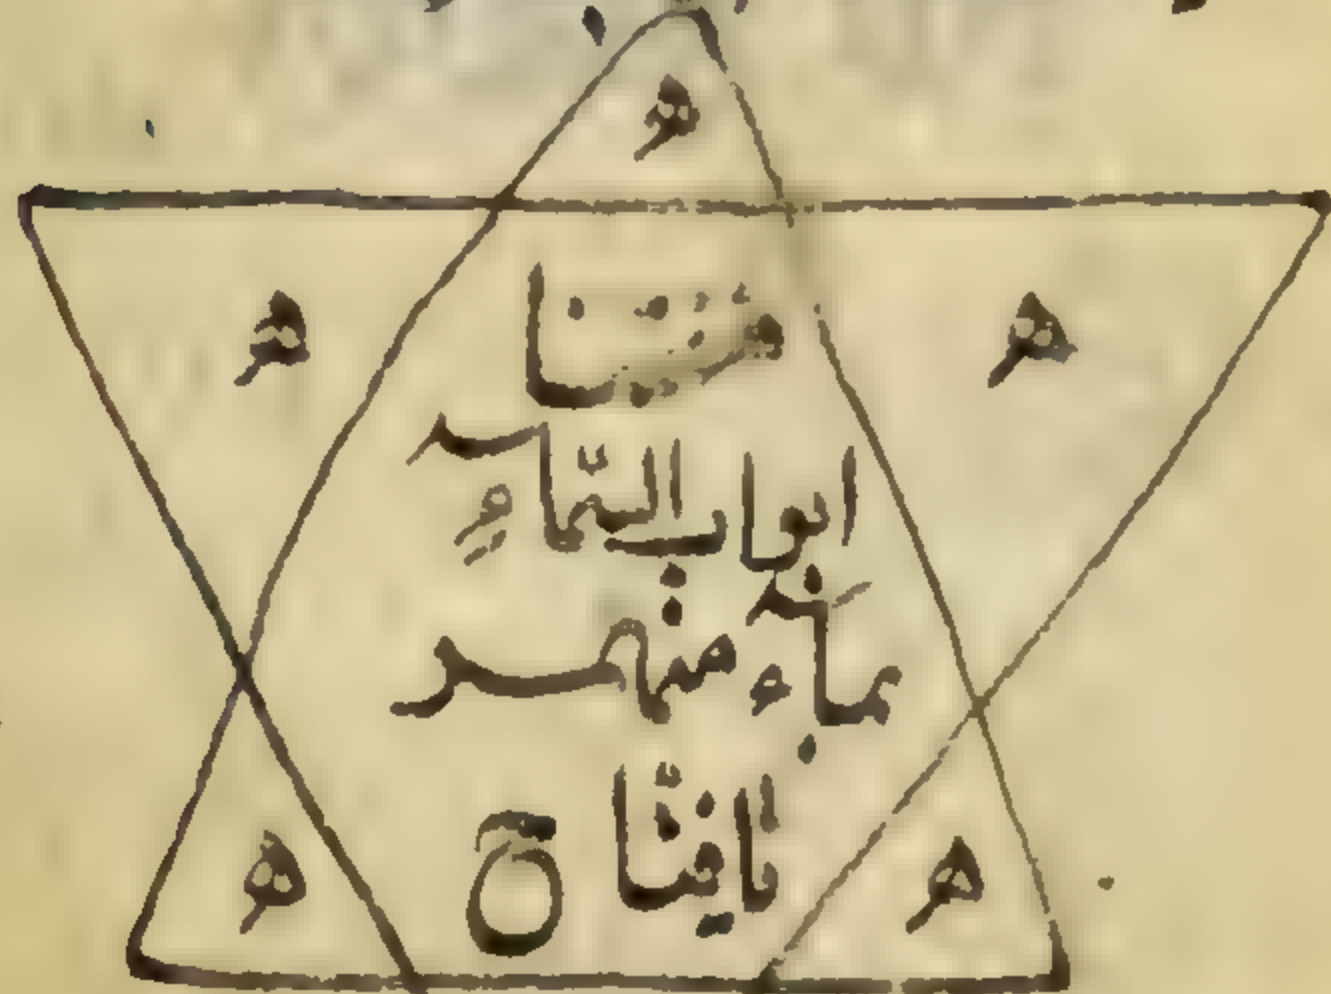 هو
هو هو
ففتحنا
ابواب السّماءِ
بماء منهمر
يا فتّاح
هو هو